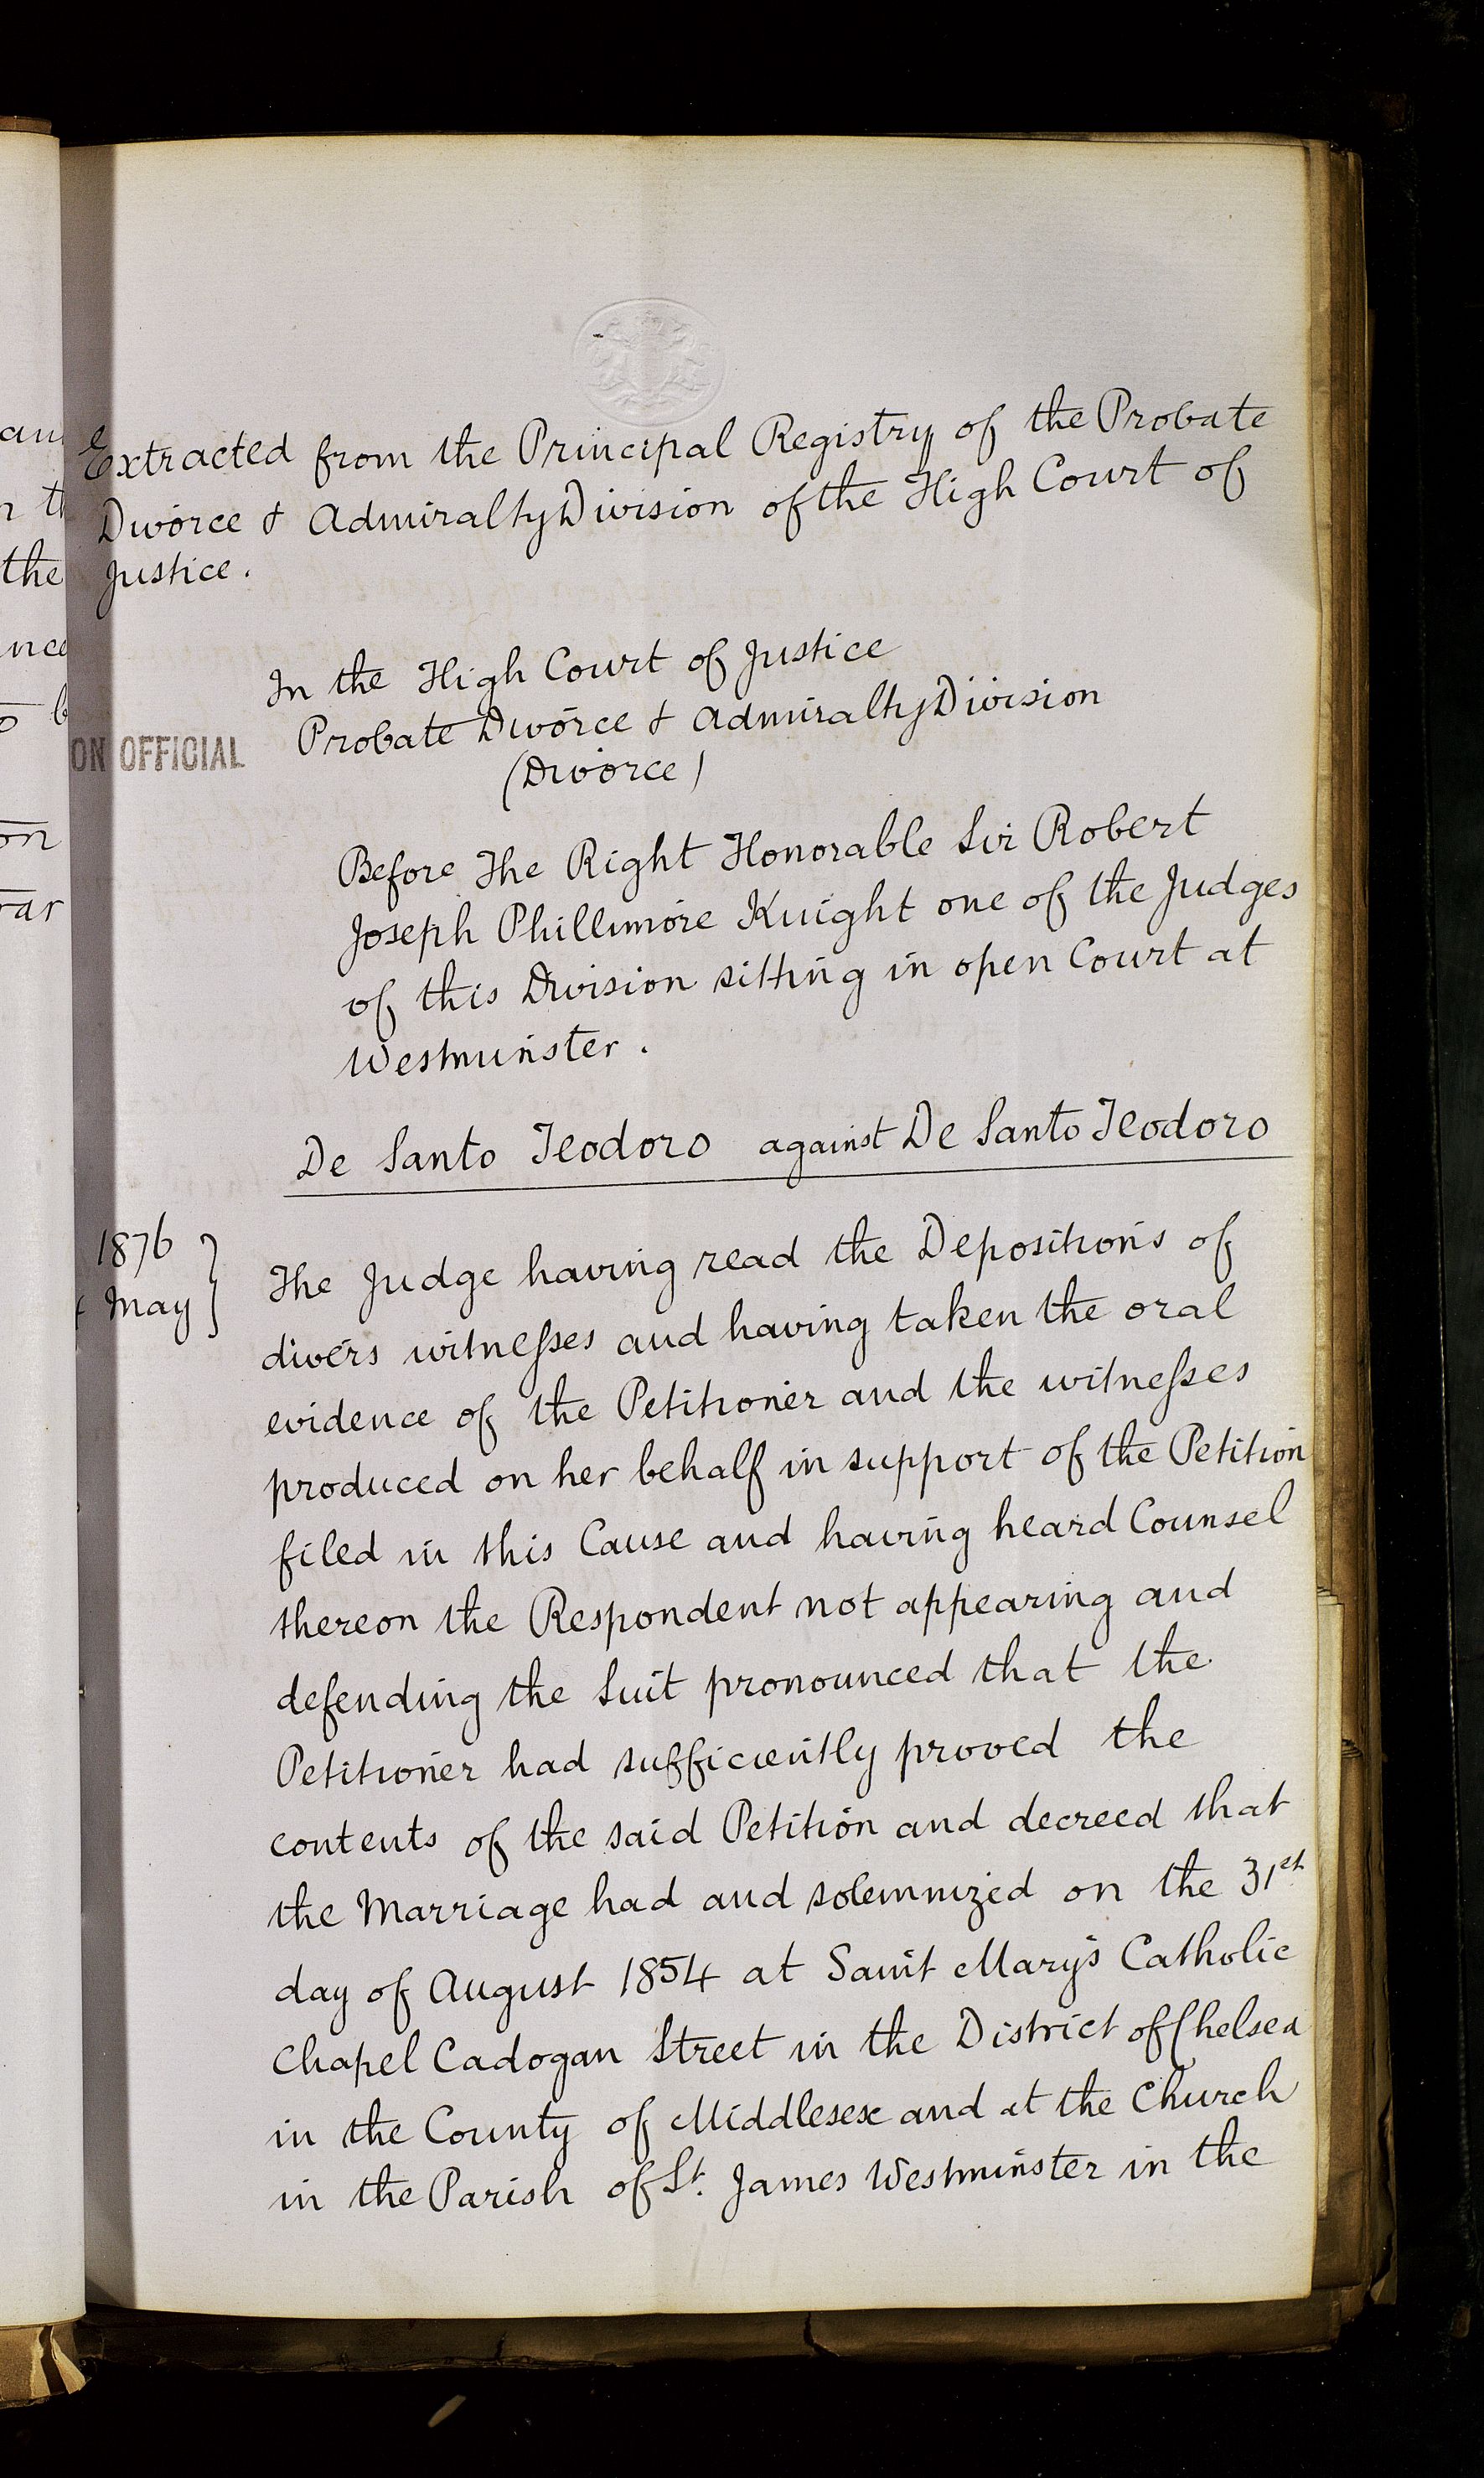 Extracted from the Principal Registry of the Probate
Divorce & Admiralty Division of the High Court of
Justice.
In the High Court of Justice
Probate Divorce & Admiralty Division
(Divorce)
ON OFFICIAL
Before The Right Honorable Sir Robert
Joseph Phillimore Knight one of the Judges
of this Division sitting in open Court at
Westminster.
De Santo Teodoro against De Santo Teodoro
1876
May
The Judge having read the Depositions of
divers witnesses and having taken the oral
evidence of the Petitioner and the witnesses
produced on her behalf in support of the Petition
filed in this Cause and having heard Counsel
thereon the Respondent not appearing and
defending the Suit pronounced that the
Petitioner had sufficiently proved the
contents of the said Petition and decreed that
the Marriage had and solemnized on the 31st
day of August 1854 at Saint Mary's Catholic
Chapel Cadogan Street in the District of Chelsea
in the County of Middlesex and at the Church
in the Parish of St. James Westminster in the